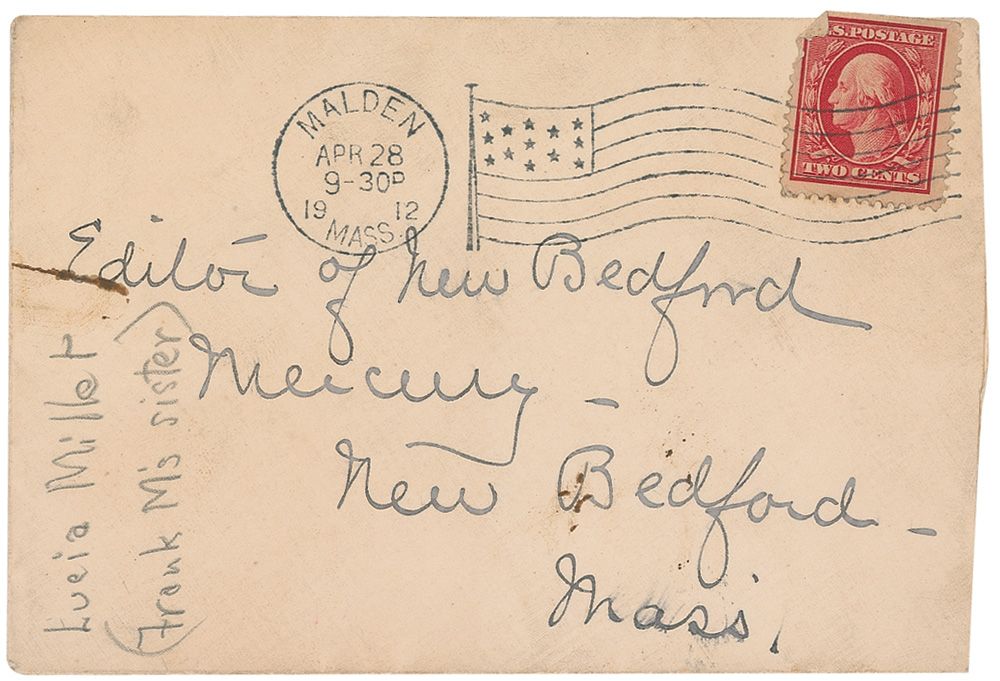 U.S. POSTAGE
TWO CENTS
MALDEN
APR 28
9-30P
19 12
MASS.
Editor of New Bedford
Mercury -
New Bedford -
Mass.
Lucia Millet
(Frank M's sister)